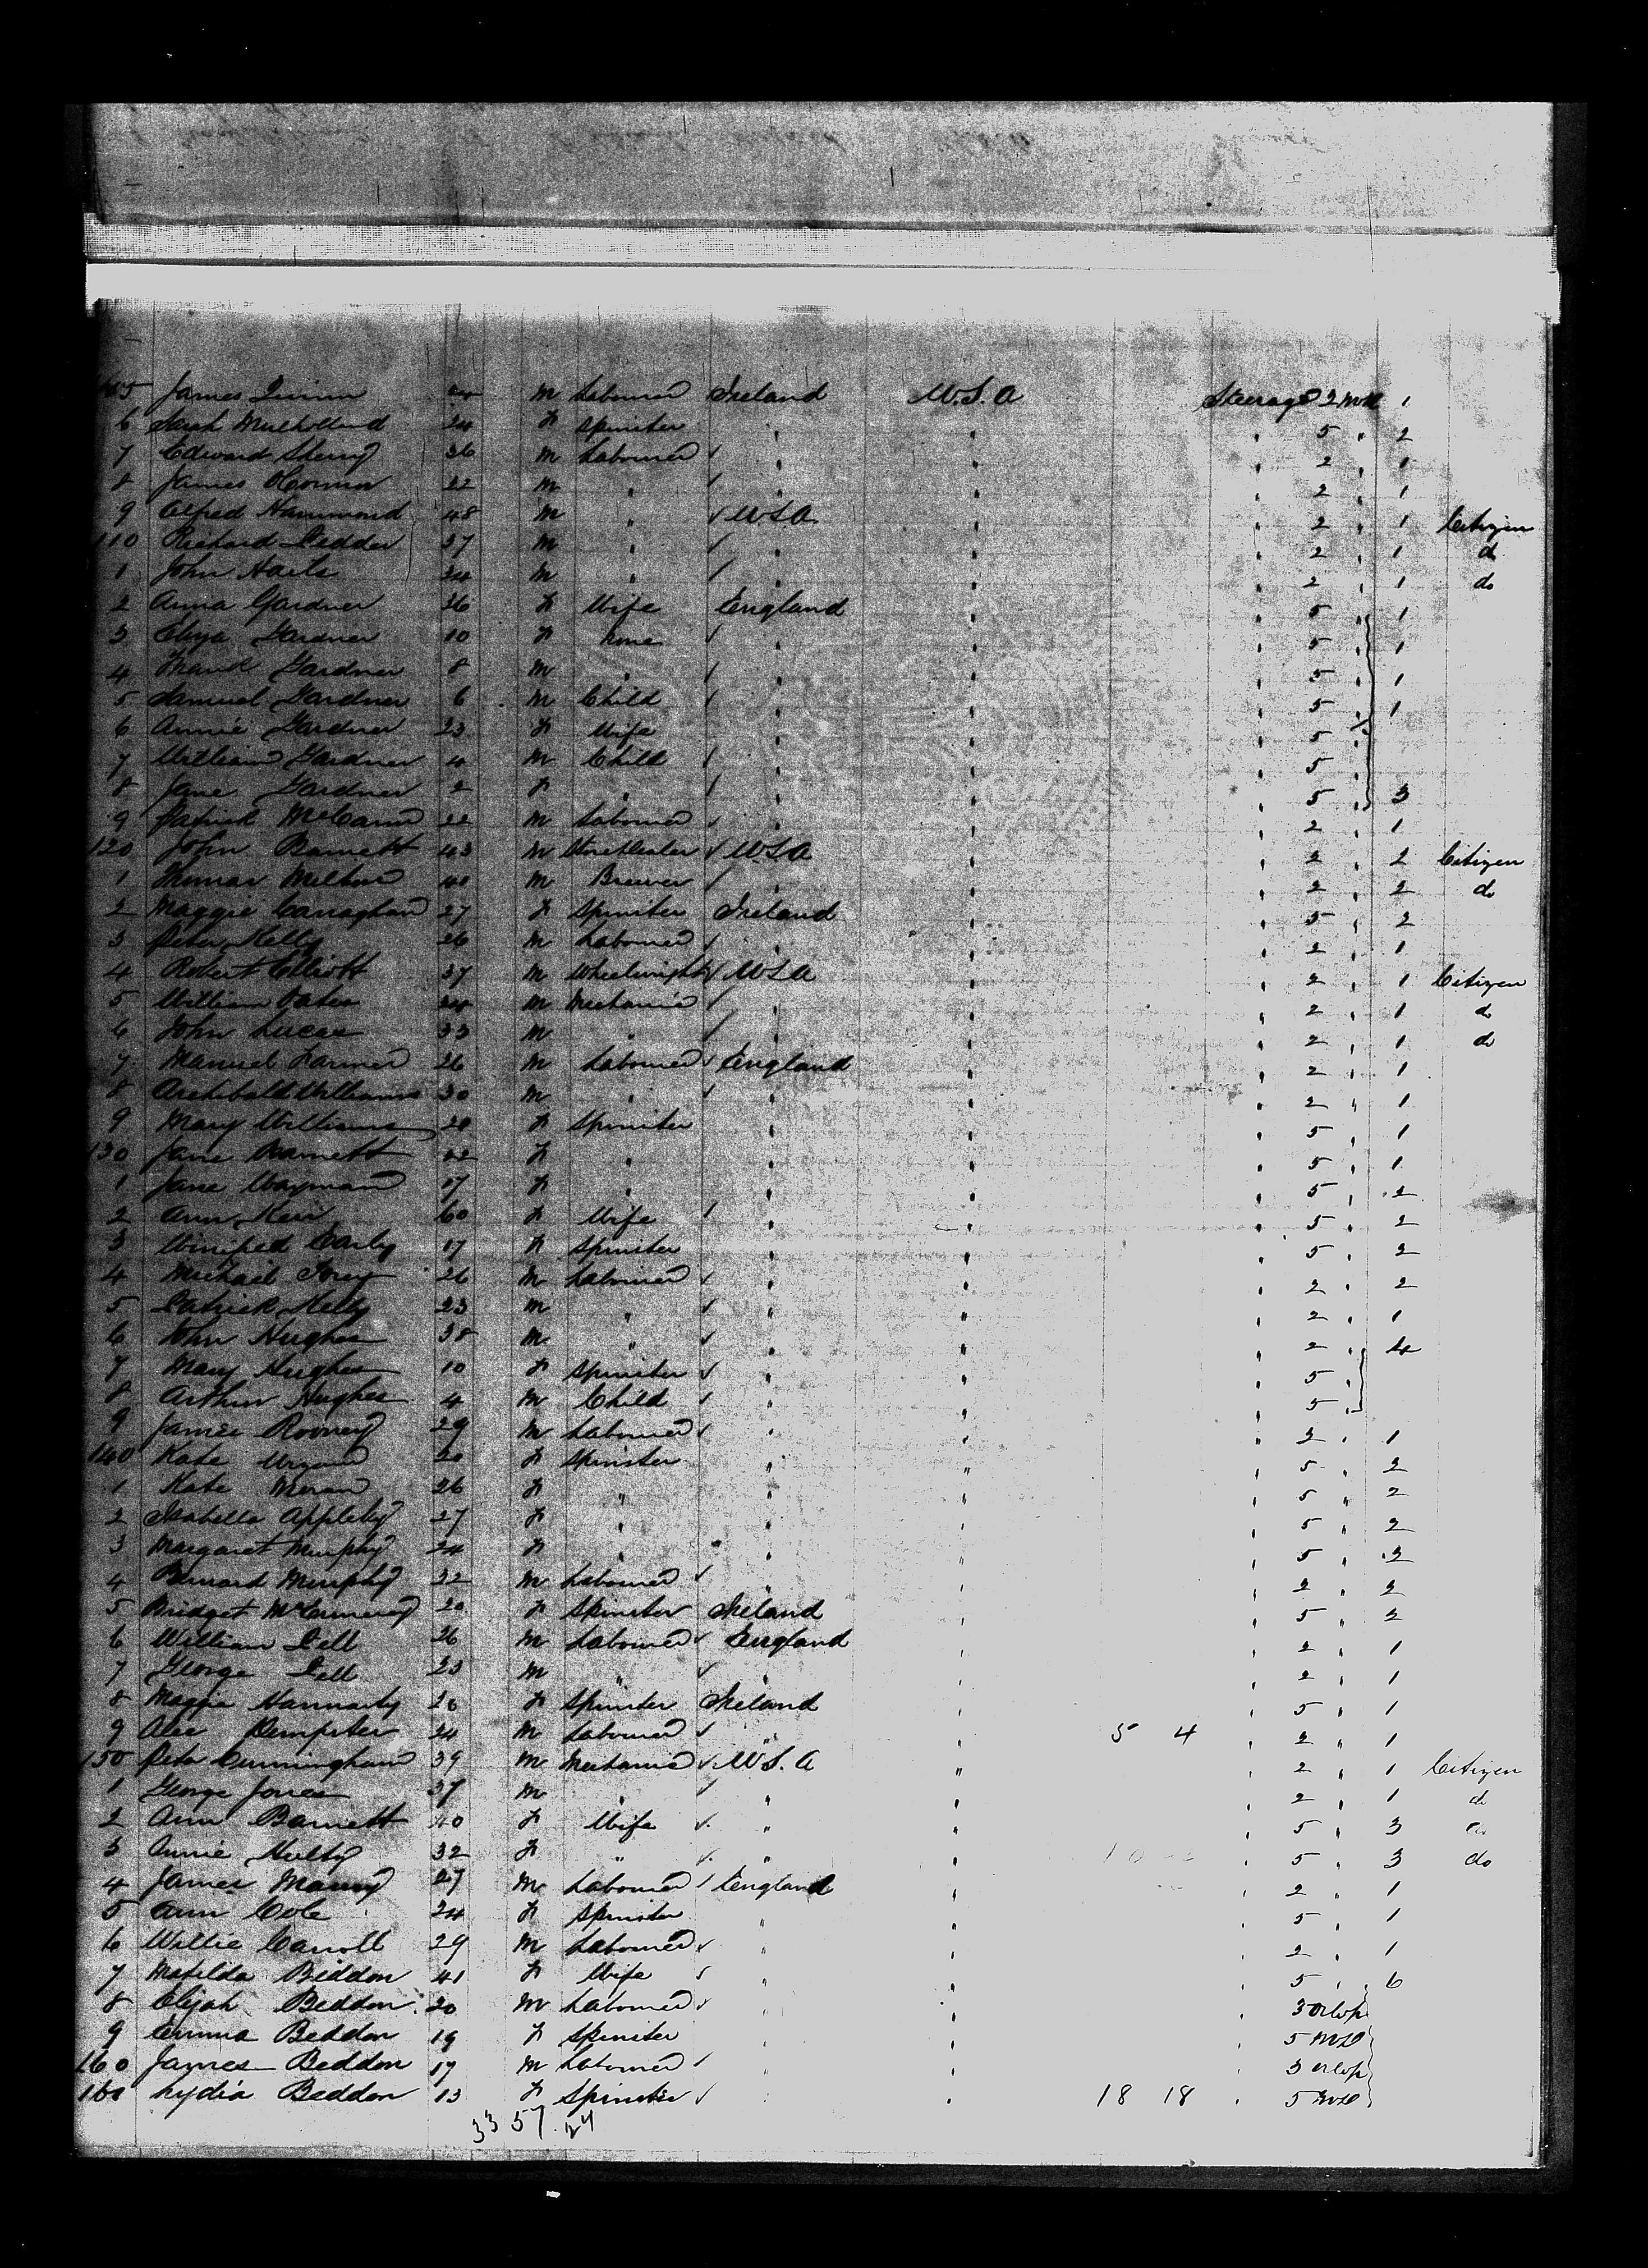 105 James Quinn 24 M Labourer Ireland U.S.A Steerage 2 No 2 1
6 Sarah Mulholland 24 F Spinster " " " 5 " 2
7 Edward Sherry 36 M Labourer " " " 2 " 1
8 James OConnor 22 M " " " " 2 " 1
9 Alfred Hammond 48 M " U.S.A " " 2 " 1 Citizen
110 Richard 37 M " " " " 2 " 1 do
1 John 24 M " " " " 2 " 1 do
2 Anna Gardner 36 F Wife England " " 5 " 1
3 Eliza Gardner 10 F None " " " 5 " 1
4 Frank Gardner 8 M " " " " 5 " 1
5 Samuel Gardner 6 M Child " " " 5 " 1
6 Annie Gardner 23 F Wife " " " 5 "
7 William Gardner 4 M Child " " " 5 "
8 Jane Gardner 2 F " " " " 5 " 3
9 Patrick McCann 22 M Labourer " " " 2 " 1
120 John Barnett 43 M U.S.A " " 2 " 2 Citizen
1 Thomas Melton 40 M Brewer " " " 2 " 2 do
2 Maggie Canaghan 27 F Spinster Ireland " " 5 " 2
3 Peter Kelly 26 M Labourer " " " 2 " 1
4 Robert Elliott 37 M Wheelwright U.S.A " " 2 " 1 Citizen
5 William 28 M Mechanic " " " 2 " 1 do
6 John Lucas 33 M " " " " 2 " 1 do
7 Manuel Farmer 26 M Labourer England " " 2 " 1
8 Archibald Williams 30 M " " " " 2 " 1
9 Mary Williams 28 F Spinster " " " 5 " 1
130 Jane Barnett 22 F " " " " 5 " 1
1 Jane Wayman 17 F " " " " 5 " 2
2 Ann Keir 60 F Wife " " " 5 " 2
3 Winifred Early 17 F Spinster " " " 5 " 2
4 Michael 26 M Labourer " " " 2 " 2
5 Patrick Kelly 23 M " " " " 2 " 1
6 John Hughes 38 M " " " " 2 " 4
7 Mary Hughes 10 F Spinster " " " 5 "
8 Arthur Hughes 4 M Child " " " 5 "
9 James Rooney 29 M Labourer " " " 2 " 1
140 Kate 20 F Spinster " " " 5 " 2
1 Kate Moran 26 F " " " " 5 " 2
2 Isabella Appleby 27 F " " " " 5 " 2
3 Margaret Murphy 24 F " " " " 5 " 2
4 Bernard Murphy 22 M Labourer " " " 2 " 2
5 Bridget 20 F Spinster Ireland " " 5 " 2
6 William Dell 26 M Labourer England " " 2 " 1
7 George Dell 23 M " " " " 2 " 1
8 Maggie 26 F Spinster Ireland " " 5 " 1
9 Alec Dempster 24 M Labourer " " 5 4 " 2 " 1
150 Peter Cunningham 39 M Mechanic U.S.A " " 2 " 1 Citizen
1 George Jones 37 M " " " " 2 " 1 do
2 Ann Barnett 40 F Wife " " " 5 " 3 do
3 Annie 32 F " " " " 5 " 3 do
4 James 27 M Labourer England " " 2 " 1
5 Ann Cole 24 F Spinster " " " 5 " 1
6 Willie Carroll 29 M Labourer " " " 2 " 1
7 Matilda Beddon 41 F Wife " " " 5 " 6
8 Elijah Beddon 20 M Labourer " " " 3 Orlop
9 Emma Beddon 19 F Spinster " " " 5 No 2
160 James Beddon 17 M Labourer " " " 3 Orlop
161 Lydia Beddon 13 F Spinster " " 18 18 " 5 No 2
33 57 . 24